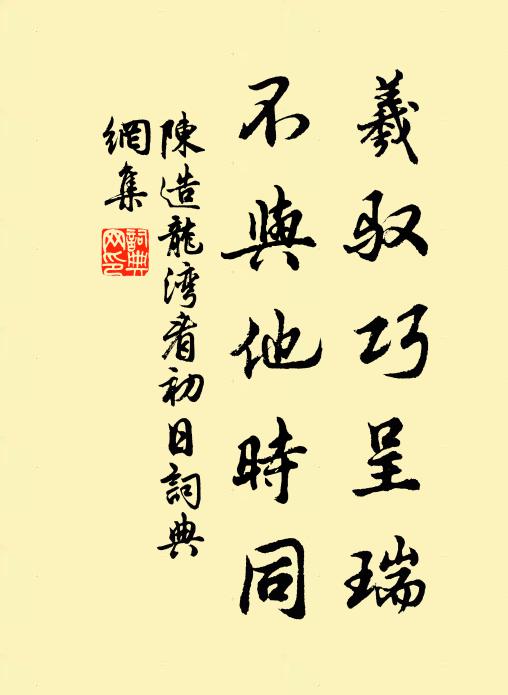 羲驭巧呈瑞
不與他時同
陳造龍湾看初日詞典
網集
詞典
网印